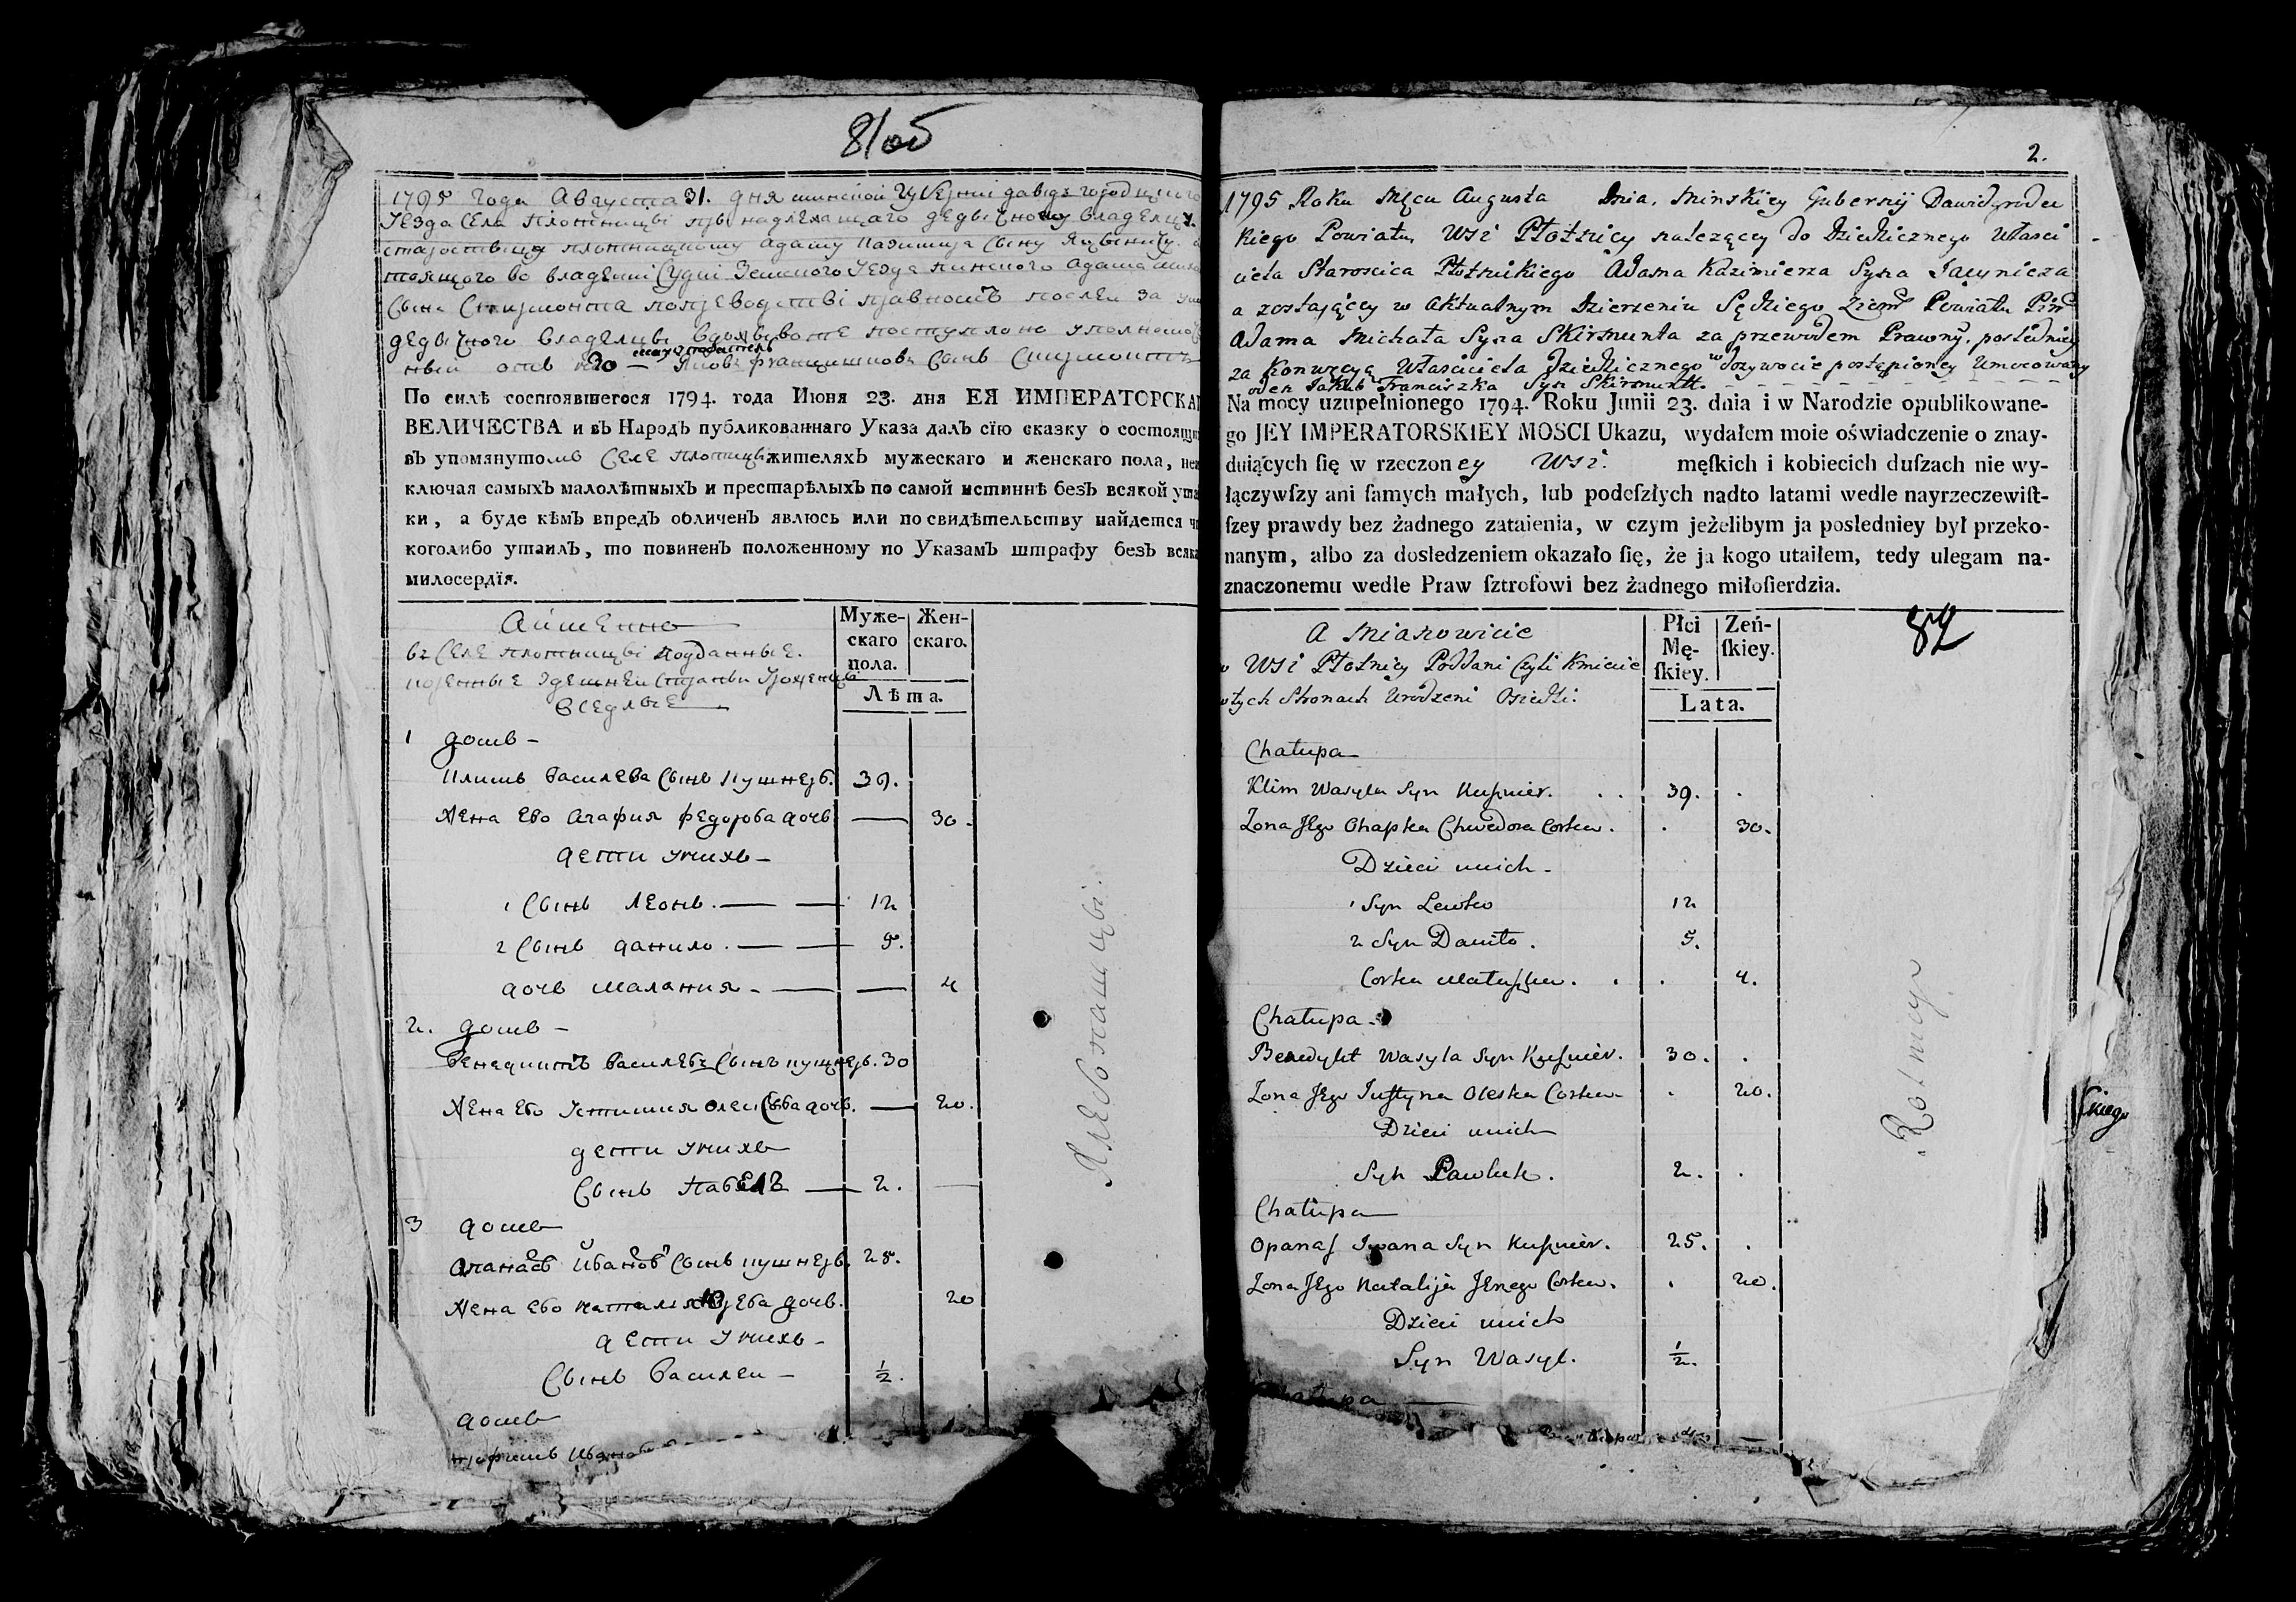 81об
1795 года Августа 31. дня минской Губернии давыдъ городцкого
уезда села Плотницы принадлежащаго дедычному владелцу.
старостицу плотницкому Адаму Казимира сыну
во владении судии Земского уезда пинского Адама
сына Скирмонта
дедычного владелцы
Францишковъ сынъ Скирмонтъ
По силѣ состоявшегося 1794. года Июня 23. дня ЕЯ ИМПЕРАТОРСКА
ВЕЛИЧЕСТВА и въ Народъ публикованнаго Указа далъ сїю сказку о состоящи
въ упомянутомъ селе плотницы жителяхъ мужескаго и женскаго пола, не
ключая самыхъ малолѣтныхъ и престарѣлыхъ по самой истиннѣ безъ всякой ута
ки, а буде кѣмъ впредъ обличенъ явлюсь или по свидѣтельству найдется ч
коголибо утаилъ, то повиненъ положенному по Указамъ штрафу безъ всяка
милосердїя.
Аименно
въ селе плотницы подданные.
здешней страны уроженцы
оседлые
Муже-скаго пола.
Жен-скаго.
Лѣта.
1 домъ
Климъ василева сынъ кушнеръ. 39.
жена ево агафия федорова дочь — 30.
дети у нихъ
1 сынъ леонъ. — 12
2 сынъ данило. — 5.
дочь малания — 4
2. домъ
венедиктъ василевъ сынъ кушнеръ. 30
жена ево устиния олексеева дочь. — 20.
дети у нихъ
сынъ павелъ — 2.
3 домъ
апанасъ ивановъ сынъ кушнеръ. 25.
жена ево наталия дочь. 20
дети у нихъ
сынъ василей — ½.
домъ
трофимъ иванов
Хлебопашцы.
2.
1795 Roku Mca Augusta Dnia. Minskiey Gubernij Dawidgrodec
kiego Powiatu, Wsi Płotnicy należącey do Dziedzicznego Własci
ciela Starościca Płotnickiego Adama Kazimierza Syna Jacynicza
a zostającey w aktualnym Dzierżeniu Sędziego Ziem Powiatu Pin
Adama Michała Syna Skirmunta za przewodem Prawny. posledniey
za konwęcyą Właściciela Dziedzicznego w dożywocie postąpioney Umocowany
oden Jakub Franciszka Syn Skirmuntt.
Na mocy uzupełnionego 1794. Roku Junii 23. dnia i w Narodzie opublikowane-
go JEY IMPERATORSKIEY MOSCI Ukazu, wydałem moie oświadczenie o znay-
duiących ſię w rzeczoney Wsi. męſkich i kobiecich duſzach nie wy-
łączywſzy ani ſamych małych, lub podeſzłych nadto latami wedle nayrzeczewiſt-
ſzey prawdy bez żadnego zataienia, w czym jeżelibym ja posledniey był przeko-
nanym, albo za dosledzeniem okazało ſię, że ja kogo utaiłem, tedy ulegam na-
znaczonemu wedle Praw ſztrofowi bez żadnego miłoſierdzia.
A Mianowicie
w Wsi Płotnicy Poddani Czyli Kmiecie
w tych Stronach Urodzeni Osiedli.
Płci Mę-ſkiey.
Zeń-ſkiey.
Lata.
82
Chałupa
Klim Wasyla Syn Kuſznier. 39.
Zona Jego Ohapka Chwedora Corka. 30.
Dzieci u nich
1 Syn Lewko 12
2 Syn Daniło. 5.
Corka Małuſzka. 4.
Chałupa
Benedykt Wasyla Syn Kuſznier. 30.
Zona Jego Juſtyna Oleska Corka 20.
Dzieci u nich
Syn Pawluk. 2.
Chałupa
Opanaſ Iwana Syn Kuſznier. 25.
Zona Jego Natalija Corka. 20.
Dzieci u nich
Syn Wasyl. ½.
Chałupa
Rolnicy